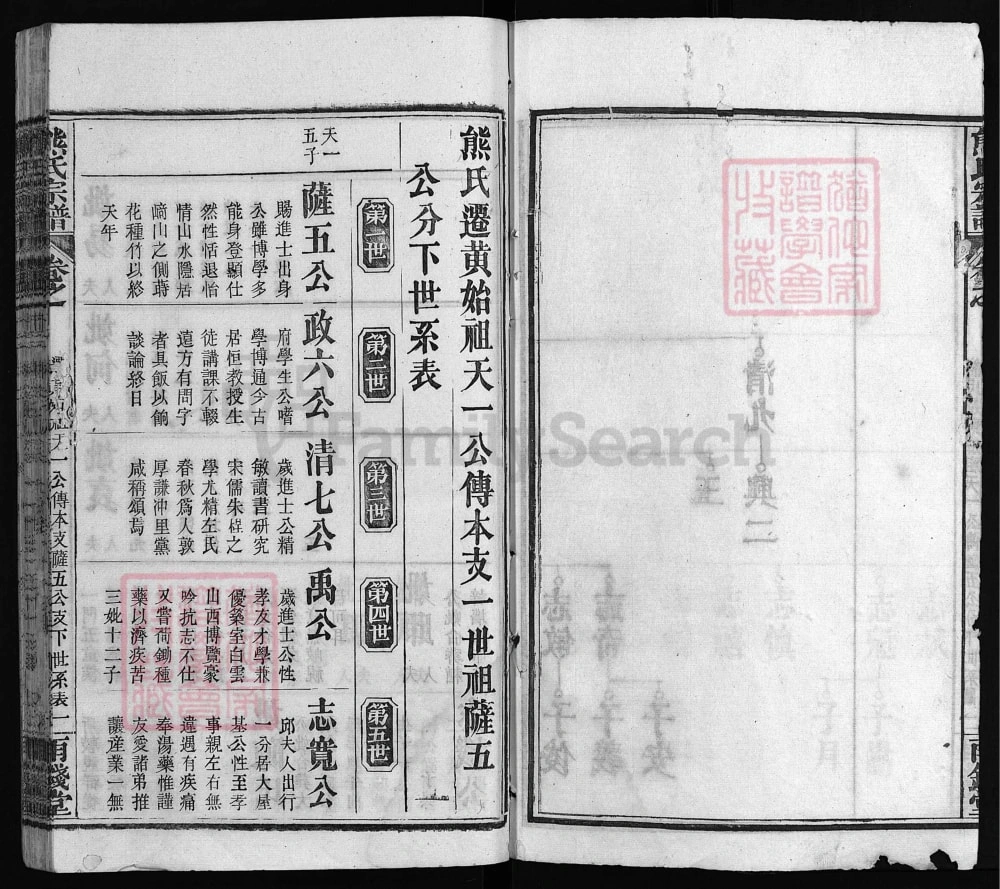 熊氏遷黄始祖天一公傳本支一世祖薩五
公分下世系表
第一世
第二世
第三世
第四世
第五世
天一
五子
薩五公
賜進士出身
公雖博學多
能身登顯仕
然性恬退怡
情山水隱居
崎山之側蒔
花種竹以終
天年
政六公
府學生公嗜
學博通今古
居恒教授生
徒講課不輟
遠方有問字
者具飯以餉
談論終日
清七公
歲進士公精
敏讀書研究
宋儒朱程之
學尤精左氏
春秋爲人敦
厚謙冲里黨
咸稱頌焉
禹公
歲進士公性
孝友才學兼
優築室白雲
山西博覽豪
吟抗志不仕
又嘗荷鋤種
藥以濟疾苦
三妣十三子
志寬公
邱夫人出行
一分居大屋
基公性至孝
事親左右無
違遇有疾痛
奉湯藥惟謹
友愛諸弟推
讓産業一無
熊氏宗譜
卷之一
天一公傳本支薩五公支下世系表
一
Family Search